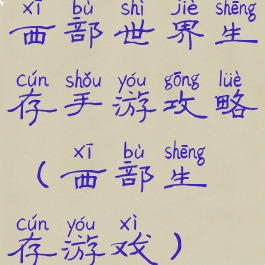 xī bù shì jiè shēng
西部世界生
cún shǒu yóu gōng lüè
存手游攻略
xī bù shēng
（西部生
cún yóu xì
存游戏）